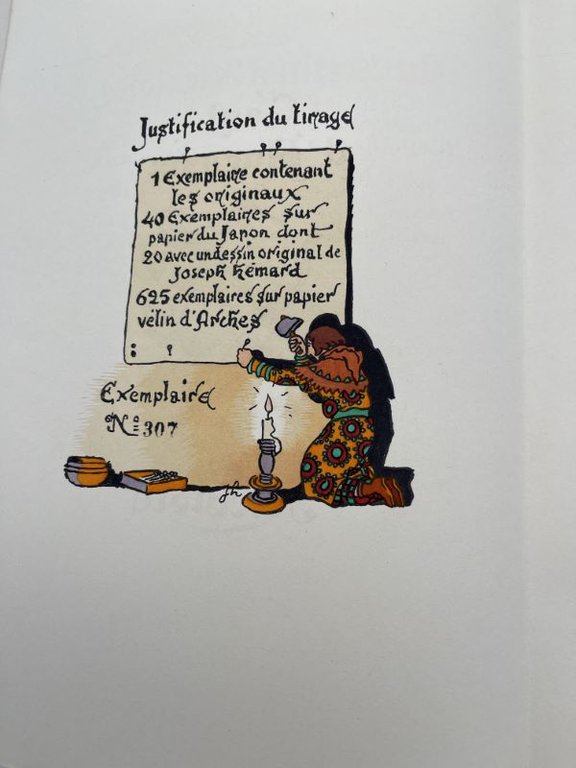 Justification du tirage
1 Exemplaire contenant
les originaux
40 Exemplaires sur
papier du Japon dont
20 avec un dessin original de
Joseph Hémard
625 exemplaires sur papier
vélin d'Arches
Exemplaire
Nº 307
jh